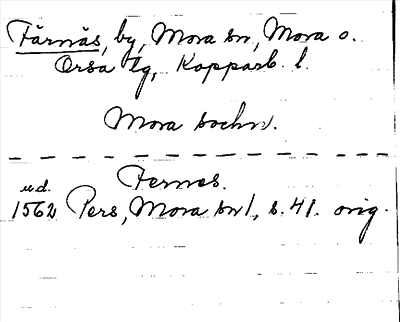 Färnäs, by, Mora sn, Mora o.
Orsa tg, Kopparb. l.
Mora sockn.
Fernes.
u.d.
1562 Pers, Mora sn 1, s. 41. orig.